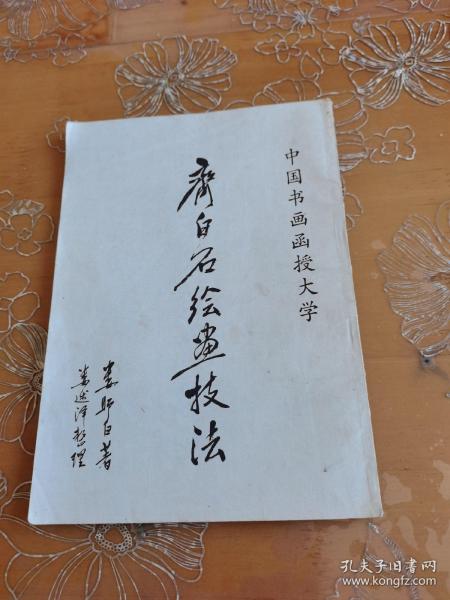 中国书画函授大学
齐白石绘画技法
娄师白著
娄述泽整理
孔夫子旧书网
www.kongfz.com